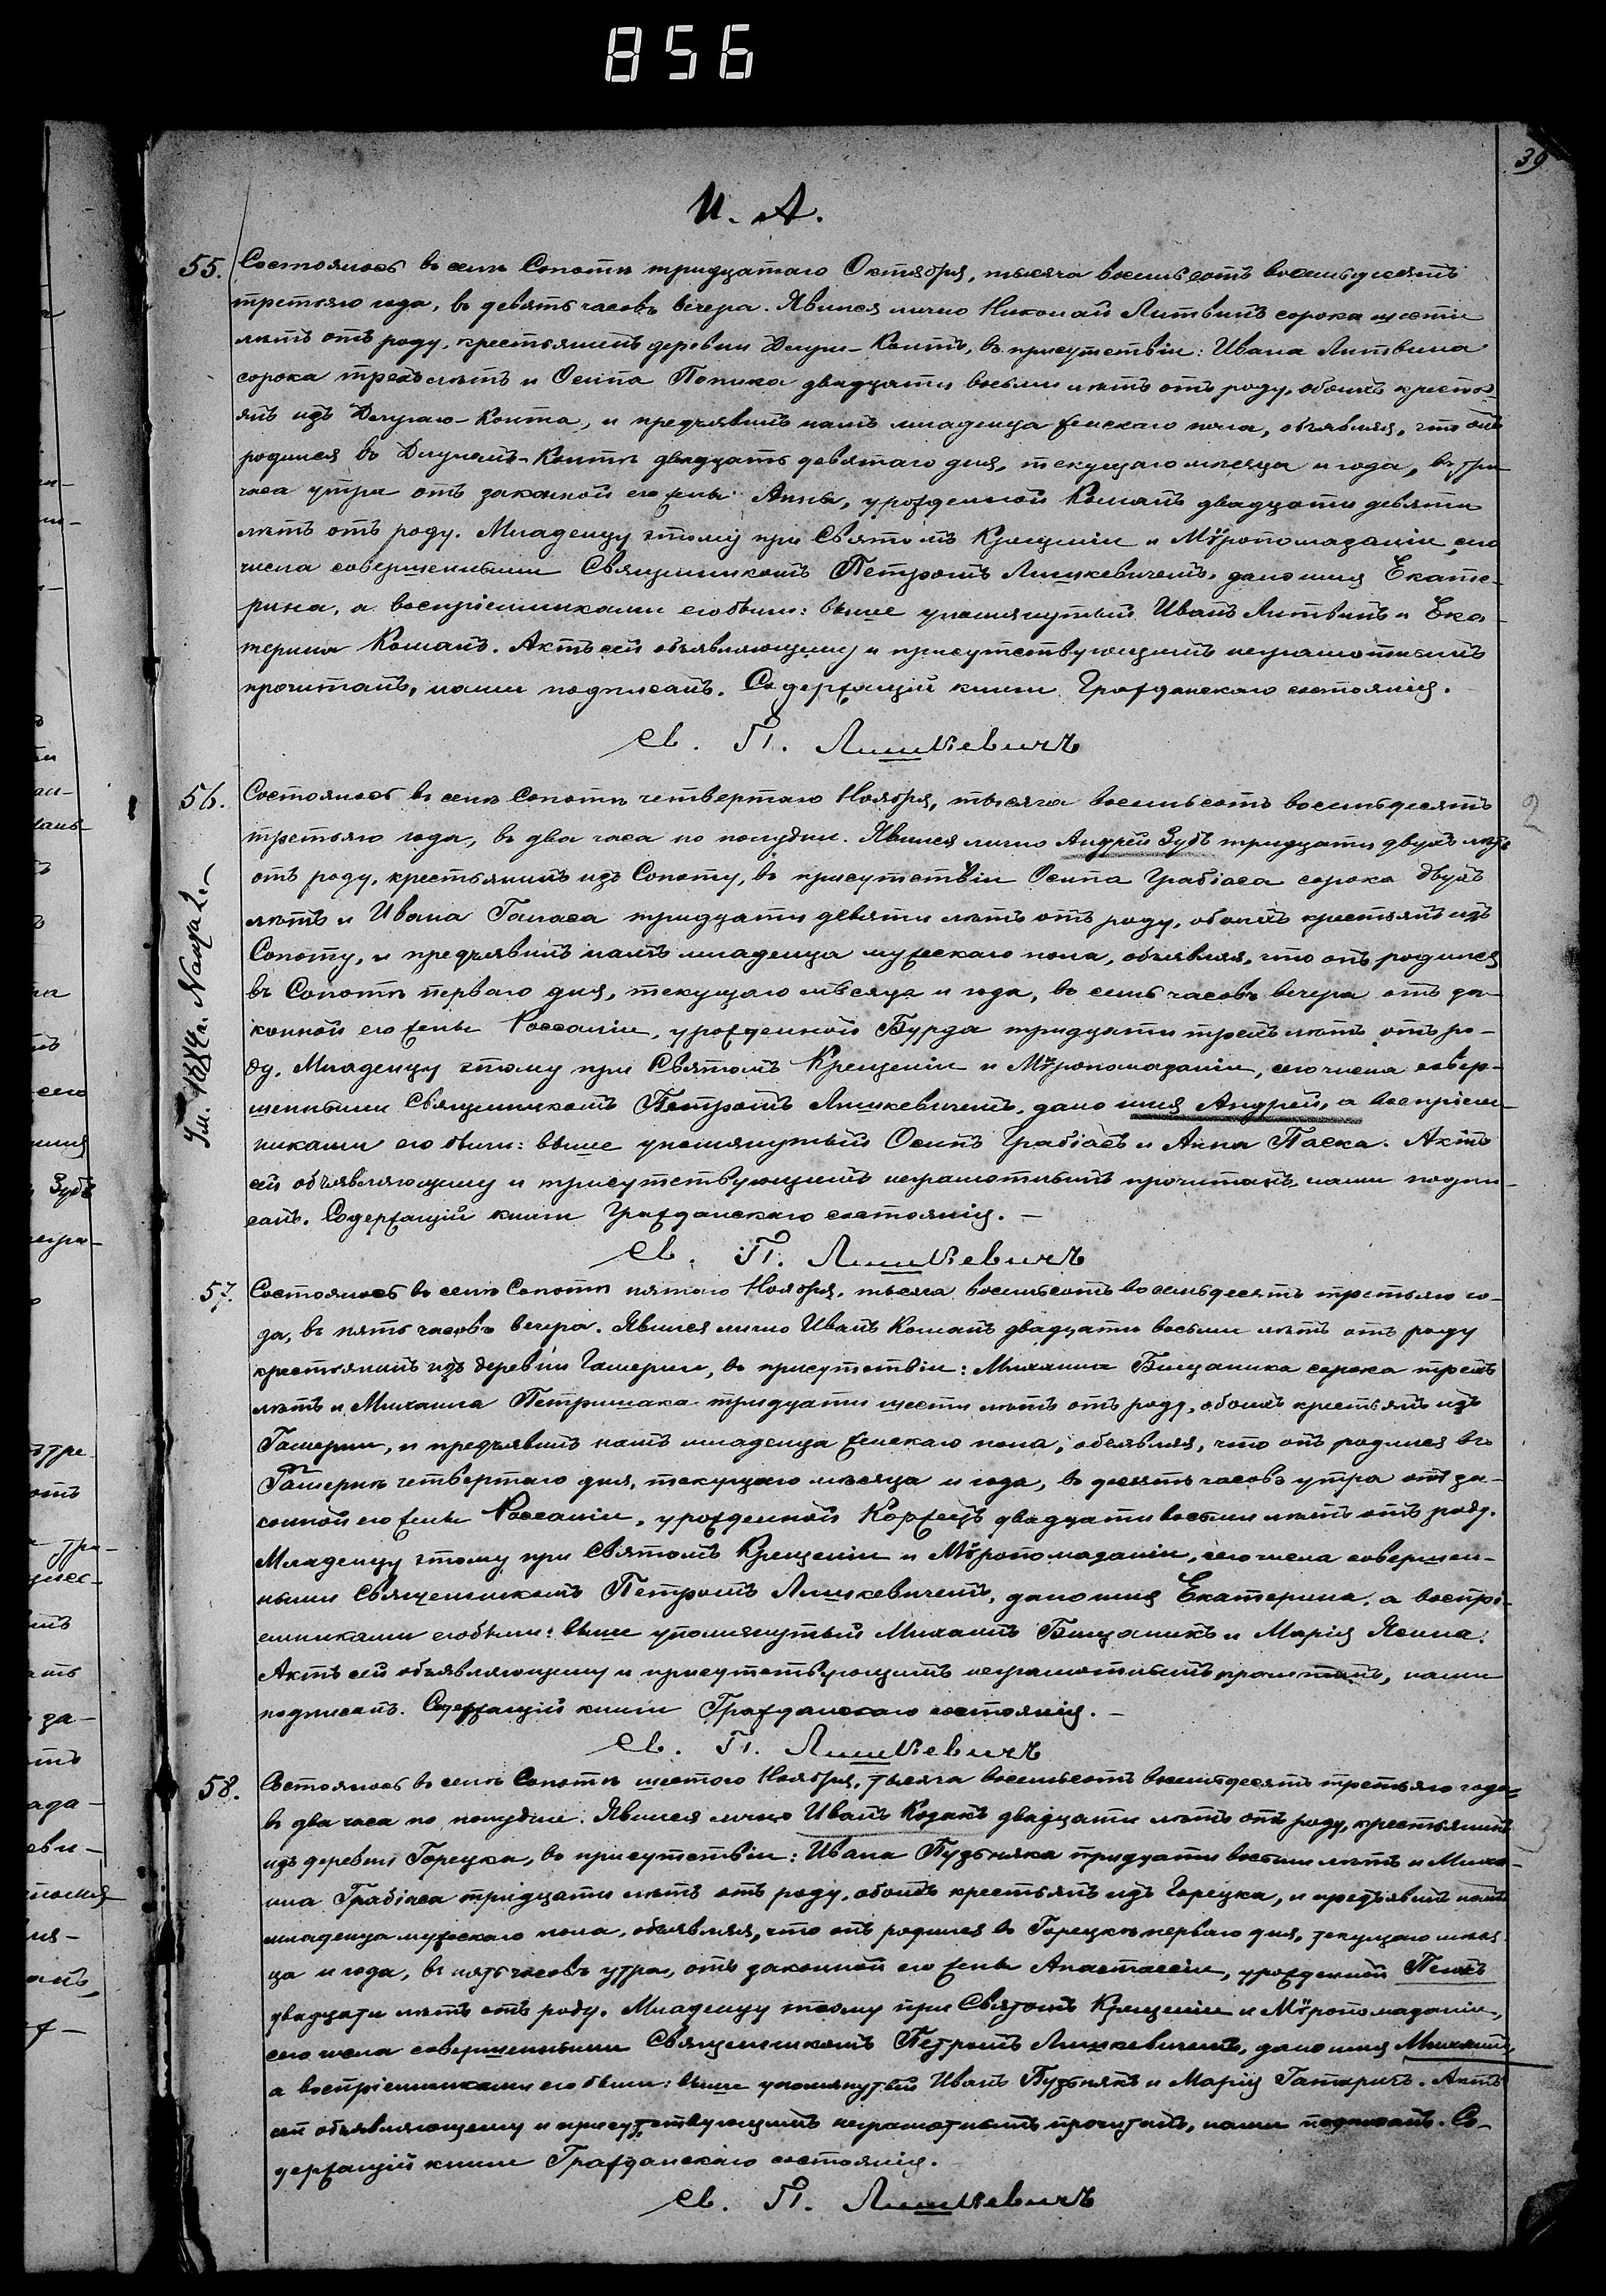 856
39
И. А.
55. Состоялось въ селѣ Сопотѣ тридцатаго Октября, тысяча восемьсотъ восемьдесятъ
третьяго года, въ девять часовъ вечера. Явился лично Николай Литвинъ сорока шести
лѣтъ отъ роду, крестьянинъ деревни Длуги-Контъ, въ присутствіи: Ивана Литвина
сорока трехъ лѣтъ и Осипа Попика двадцати восьми лѣтъ отъ роду, обоихъ кресть-
янъ изъ Длугаго-Конта, и предъявилъ намъ младенца женскаго пола, объявляя, что онъ
родился въ Длугомъ-Контѣ двадцать девятаго дня, текущаго мѣсяца и года, въ три
часа утра отъ законной его жены Анны, урожденной Команъ двадцати девяти
лѣтъ отъ роду. Младенцу этому при Святомъ Крещеніи и Мѵропомазаніи, сего
числа совершенными Священникомъ Петромъ Лишкевичемъ, дано имя Екате-
рина, а воспріемниками его были: выше упомянутый Иванъ Литвинъ и Ека-
терина Команъ. Актъ сей объявляющему и присутствующимъ неграмотнымъ
прочитанъ, нами подписанъ. Содержащій книги Гражданскаго состоянія.
Св. П. Лишкевичъ
56. Состоялось въ селѣ Сопотѣ четвертаго Ноября, тысяча восемьсотъ восемьдесятъ
третьяго года, въ два часа по полудни. Явился лично Андрей Зубъ тридцати двухъ лѣтъ
отъ роду, крестьянинъ изъ Сопоту, въ присутствіи Осипа Грабіаса сорока двухъ
лѣтъ и Ивана Галаса тридцати девяти лѣтъ отъ роду, обоихъ крестьянъ изъ
Сопоту, и предъявилъ намъ младенца мужескаго пола, объявляя, что онъ родился
въ Сопотѣ перваго дня, текущаго мѣсяца и года, въ семь часовъ вечера отъ за-
конной его жены Россаліи, урожденной Бурда тридцати трехъ лѣтъ отъ ро-
ду. Младенцу этому при Святомъ Крещеніи и Мѵропомазаніи, сего числа совер-
шенными Священникомъ Петромъ Лишкевичемъ, дано имя Андрей, а воспріем-
никами его были: выше упомянутый Осипъ Грабіасъ и Анна Паска. Актъ
сей объявляющему и присутствующимъ неграмотнымъ прочитанъ, нами подпи-
санъ. Содержащій книги Гражданскаго состоянія. —
Св. П. Лишкевичъ
57. Состоялось въ селѣ Сопотѣ пятаго Ноября, тысяча восемьсотъ восемьдесятъ третьяго го-
да, въ пять часовъ вечера. Явился лично Иванъ Команъ двадцати восьми лѣтъ отъ роду
крестьянинъ изъ деревни Гамерни, въ присутствіи: Михаила Бищаника сорока трехъ
лѣтъ и Михаила Петришака тридцати шести лѣтъ отъ роду, обоихъ крестьянъ изъ
Гамерни, и предъявилъ намъ младенца женскаго пола, объявляя, что онъ родился въ
Гамернѣ четвертаго дня, текущаго мѣсяца и года, въ десять часовъ утра отъ за-
конной его жены Россаліи, урожденной Коржецъ двадцати восьми лѣтъ отъ роду.
Младенцу этому при Святомъ Крещеніи и Мѵропомазаніи, сего числа совершен-
ными Священникомъ Петромъ Лишкевичемъ, дано имя Екатерина, а воспрі-
емниками его были: выше упомянутый Михаилъ Бищаникъ и Марія Ясина.
Актъ сей объявляющему и присутствующимъ неграмотнымъ прочитанъ, нами
подписанъ. Содержащій книги Гражданскаго состоянія. —
Св. П. Лишкевичъ
58. Состоялось въ селѣ Сопотѣ шестого Ноября, тысяча восемьсотъ восемьдесятъ третьяго года,
въ два часа по полудни. Явился лично Иванъ Козакъ двадцати лѣтъ отъ роду, крестьянинъ
изъ деревни Горецка, въ присутствіи: Ивана Пузьняка тридцати восьми лѣтъ и Миха-
ила Грабіаса тридцати лѣтъ отъ роду, обоихъ крестьянъ изъ Горецка, и предъявилъ намъ
младенца мужескаго пола, объявляя, что онъ родился въ Горецкѣ перваго дня, текущаго мѣся-
ца и года, въ пять часовъ утра, отъ законной его жены Анастассіи, урожденной
двадцати лѣтъ отъ роду. Младенцу этому при Святомъ Крещеніи и Мѵропомазаніи,
сего числа совершенными Священникомъ Петромъ Лишкевичемъ, дано имя Михаилъ,
а воспріемниками его были: выше упомянутый Иванъ Пузьнякъ и Марія. Актъ
сей объявляющему и присутствующимъ неграмотнымъ прочитанъ, нами подписанъ. Со-
держащій книги Гражданскаго состоянія.
Св. П. Лишкевичъ